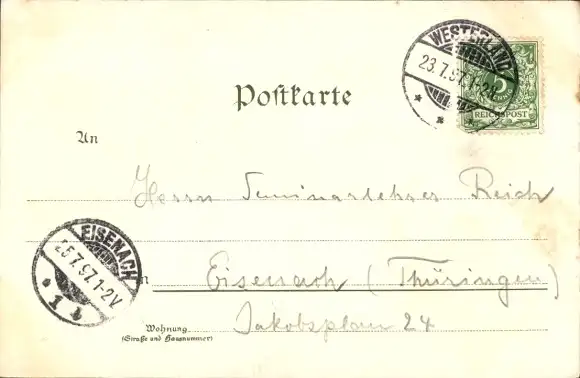 Postkarte
WESTERLAND
23.7.97.1-2N
5
REICHSPOST
An
Herrn Seminarlehrer Reich
in Eisenach (Thüringen)
EISENACH
25.7.97.1-2V
* 1
Jakobsplan 24
Wohnung
(Straße und Hausnummer)